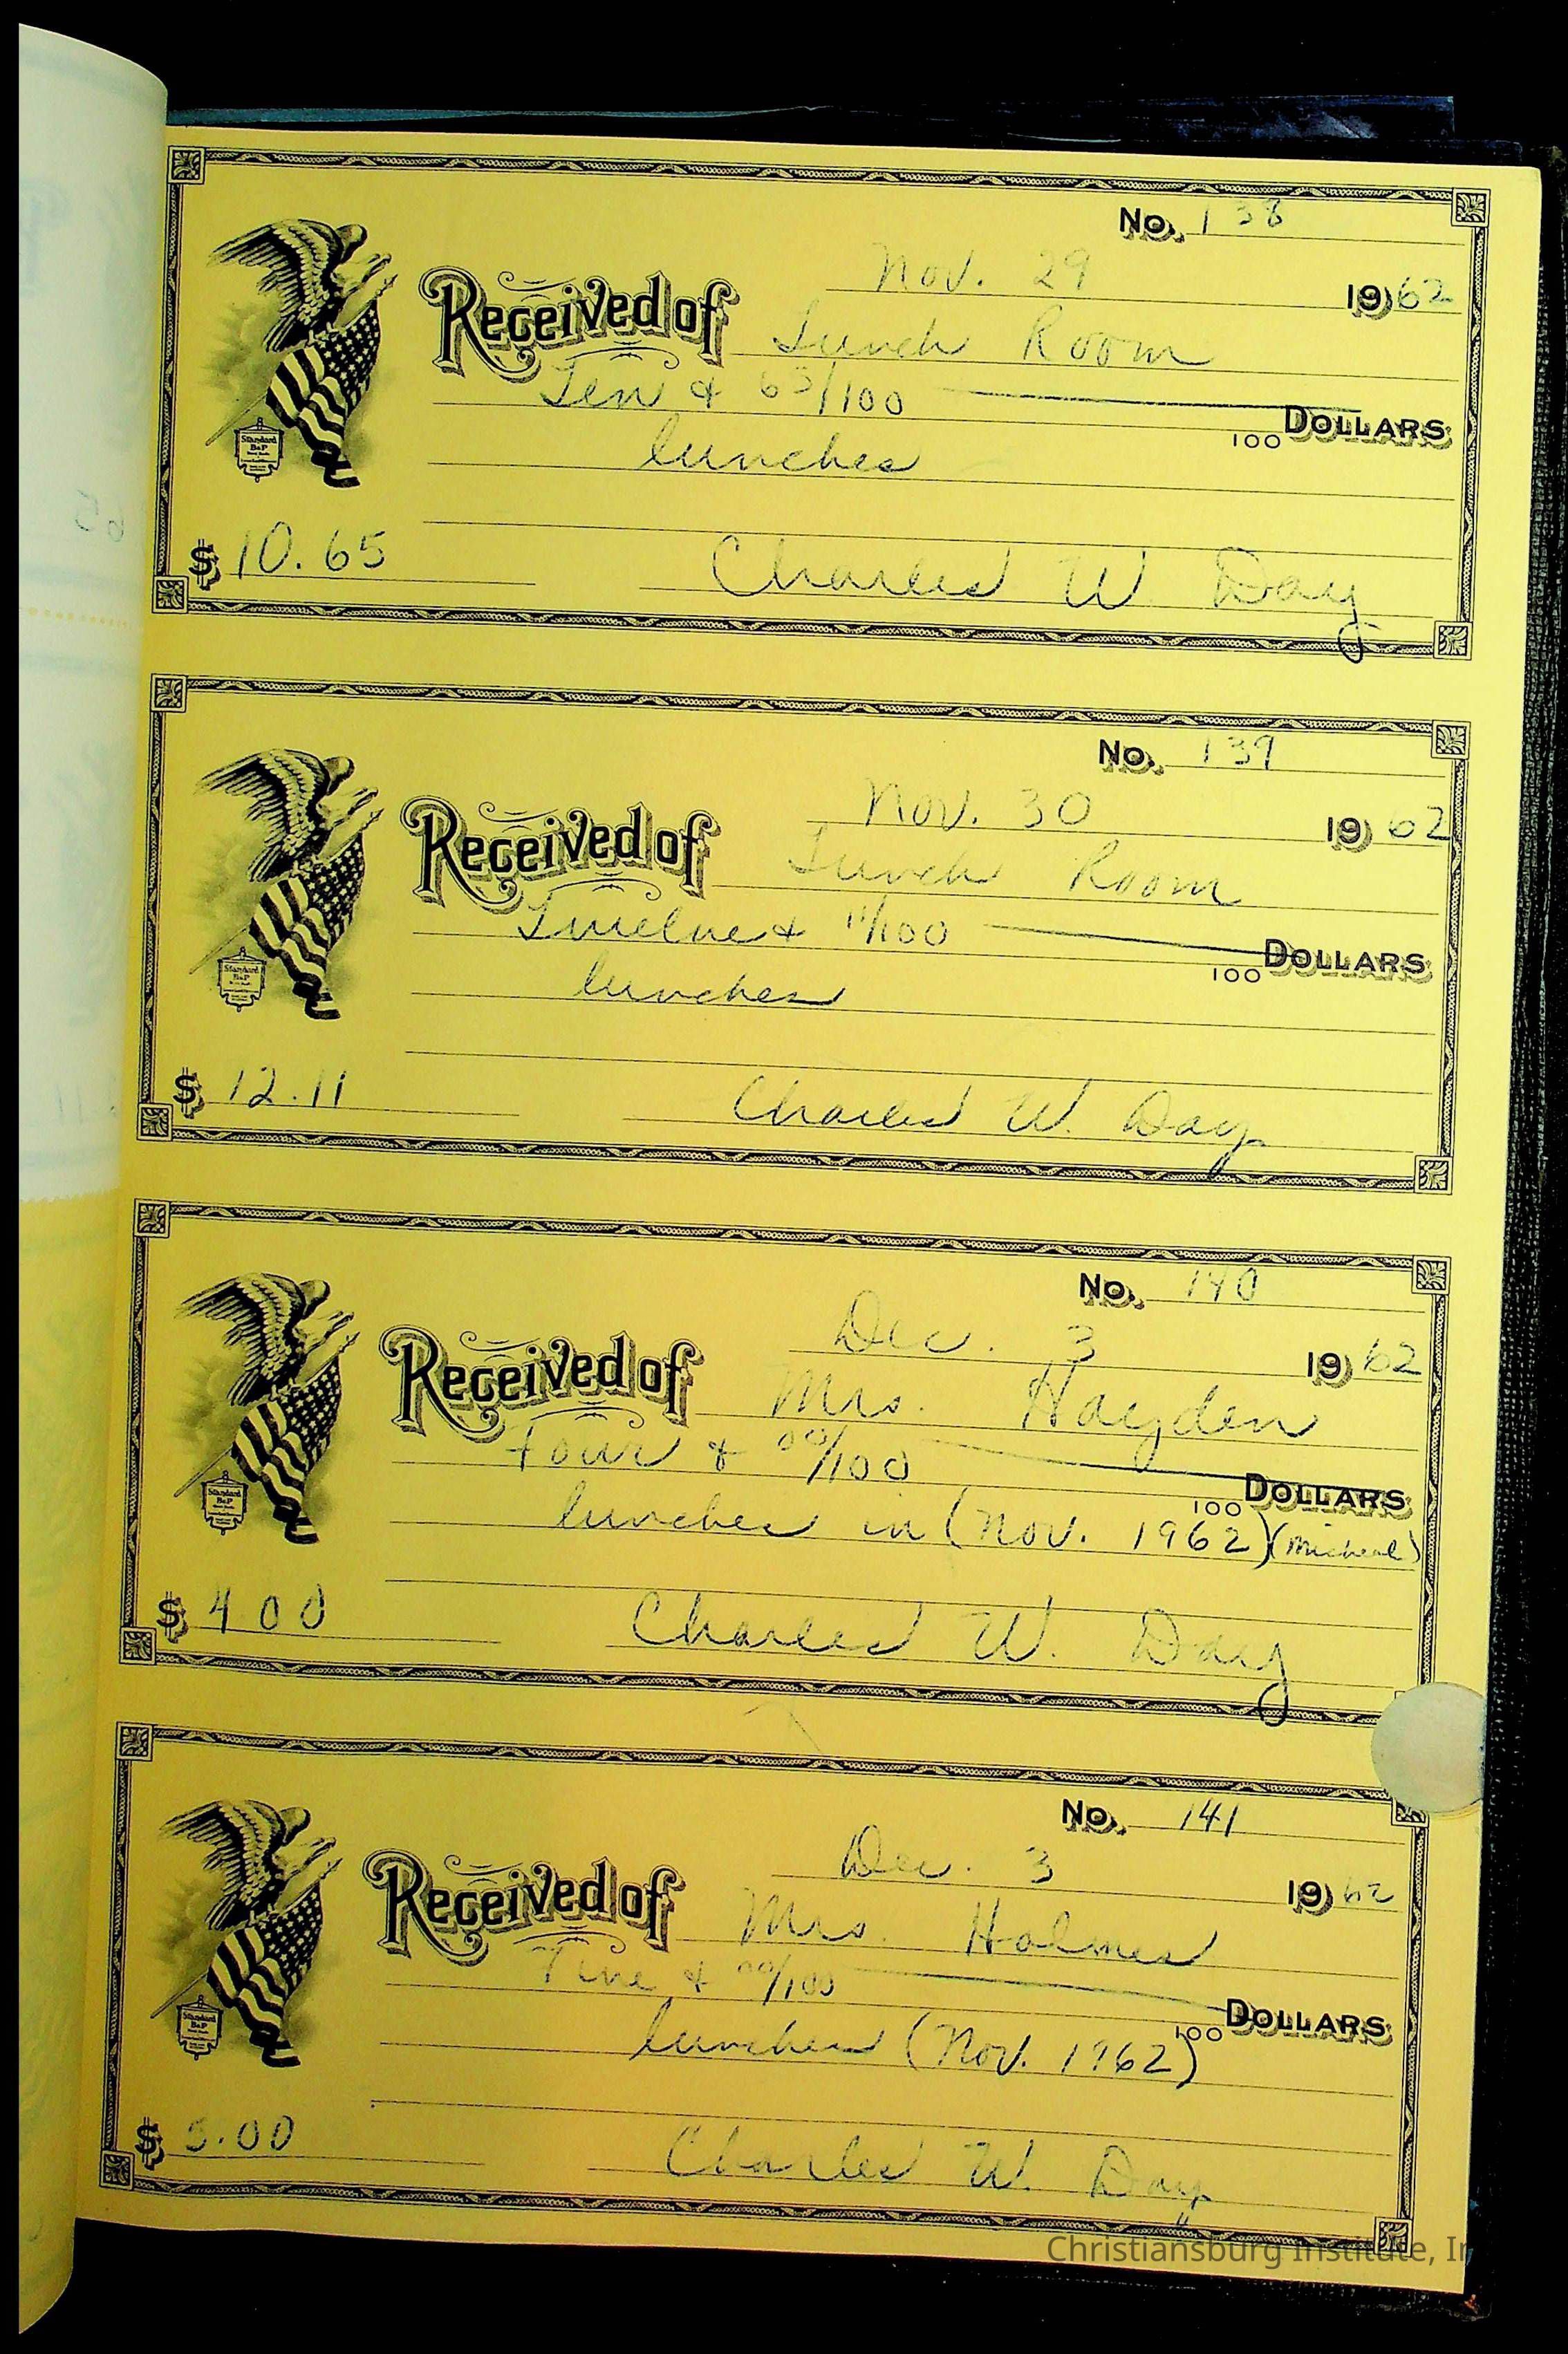 No. 138
Nov. 29 1962
Received of Lunch Room
Ten & 65/100 100 DOLLARS
lunches
$ 10.65 Charles W. Day
Standard
B&P
No. 139
Nov. 30 1962
Received of Lunch Room
Twelve & 11/100 100 DOLLARS
lunches
$ 12.11 Charles W. Day
Standard
B&P
No. 140
Dec. 3 1962
Received of Mrs. Hayden
Four & 00/100 100 DOLLARS
lunches in (Nov. 1962) (Micheal)
$ 4.00 Charles W. Day
Standard
B&P
No. 141
Dec. 3 1962
Received of Mrs. Holmes
Five & 00/100 100 DOLLARS
lunches (Nov. 1962)
$ 5.00 Charles W. Day
Standard
B&P
Christiansburg Institute, In